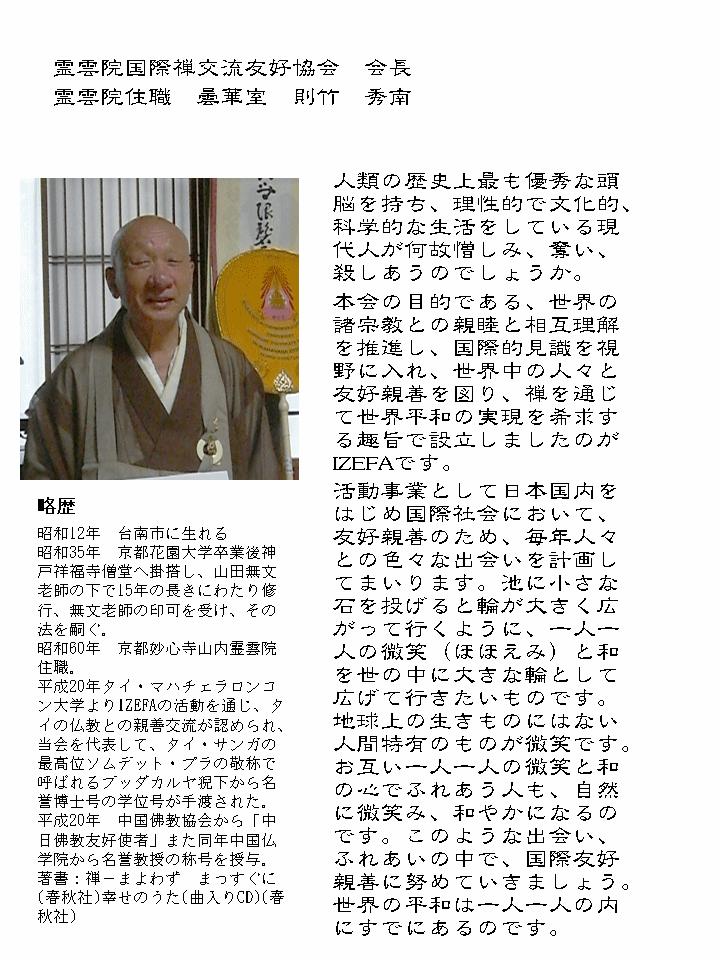 霊雲院国際禅交流友好協会　会長
霊雲院住職　曇華室　則竹　秀南
人類の歴史上最も優秀な頭
脳を持ち、理性的で文化的、
科学的な生活をしている現
代人が何故憎しみ、奪い、
殺しあうのでしょうか。
本会の目的である、世界の
諸宗教との親睦と相互理解
を推進し、国際的見識を視
野に入れ、世界中の人々と
友好親善を図り、禅を通じ
て世界平和の実現を希求す
る趣旨で設立しましたのが
IZEFAです。
活動事業として日本国内を
はじめ国際社会において、
友好親善のため、毎年人々
との色々な出会いを計画し
てまいります。池に小さな
石を投げると輪が大きく広
がって行くように、一人一
人の微笑（ほほえみ）と和
を世の中に大きな輪として
広げて行きたいものです。
地球上の生きものにはない
人間特有のものが微笑です。
お互い一人一人の微笑と和
の心でふれあう人も、自然
に微笑み、和やかになるの
です。このような出会い、
ふれあいの中で、国際友好
親善に努めていきましょう。
世界の平和は一人一人の内
にすでにあるのです。
略歴
昭和12年　台南市に生れる
昭和35年　京都花園大学卒業後神
戸祥福寺僧堂へ掛搭し、山田無文
老師の下で15年の長きにわたり修
行、無文老師の印可を受け、その
法を嗣ぐ。
昭和60年　京都妙心寺山内霊雲院
住職。
平成20年タイ・マハチェラロンコ
ン大学よりIZEFAの活動を通じ、タ
イの仏教との親善交流が認められ、
当会を代表して、タイ・サンガの
最高位ソムデット・プラの敬称で
呼ばれるブッダカルヤ猊下から名
誉博士号の学位号が手渡された。
平成20年　中国佛教協会から「中
日佛教友好使者」また同年中国仏
学院から名誉教授の称号を授与。
著書：禅－まよわず　まっすぐに
(春秋社)幸せのうた(曲入りCD)(春
秋社)